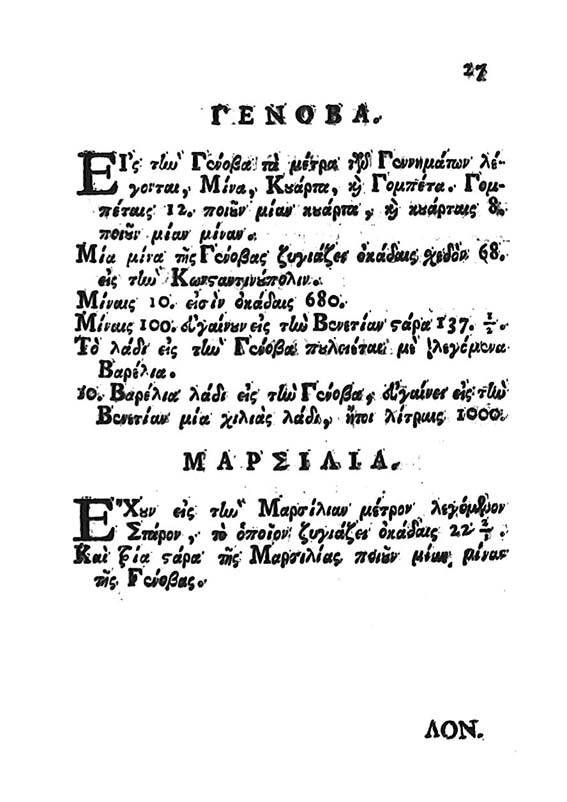 27
ΓΕΝΟΒΑ.
ΕΙς τὴν Γένοβα τὰ μέτρα τῶν Γεννημάτων λέ-
γονται, Μίνα, Κουάρτα, ϗ Γομπέτα. Γομ-
πέταις 12. ποιοῦν μίαν κουάρτα, ϗ κυάρταις 8.
ποιοῦν μίαν μίναν.
Μία μίνα τῆς Γένοβας ζυγιάζει ὀκάδαις σχεδὸν 68.
εἰς τὴν Κωνσταντινούπολιν.
Μίναις 10. εἰσὶν ὀκάδαις 680.
Μίναις 100. εὐγαίνουν εἰς τὴν Βενετίαν στάρα 137. ½.
Τὸ λάδι εἰς τὴν Γένοβα πουλιέται μὲ λεγόμενα
Βαρέλια.
10. Βαρέλια λάδι εἰς τὴν Γένοβα, εὐγαίνει εἰς τὴν
Βενετίαν μία χιλιὰς λάδι, ἤτοι λίτραις 1000.
ΜΑΡΣΙΛΙΑ.
ΕΧουν εἰς τὴν Μαρσίλιαν μέτρον λεγόμενον
Στάρον, τὸ ὁποῖον ζυγιάζει ὀκάδαις 22
Καὶ τρία στάρα τῆς Μαρσιλίας ποιοῦν μίαν μίναν
τῆς Γένοβας.
ΛΟΝ.